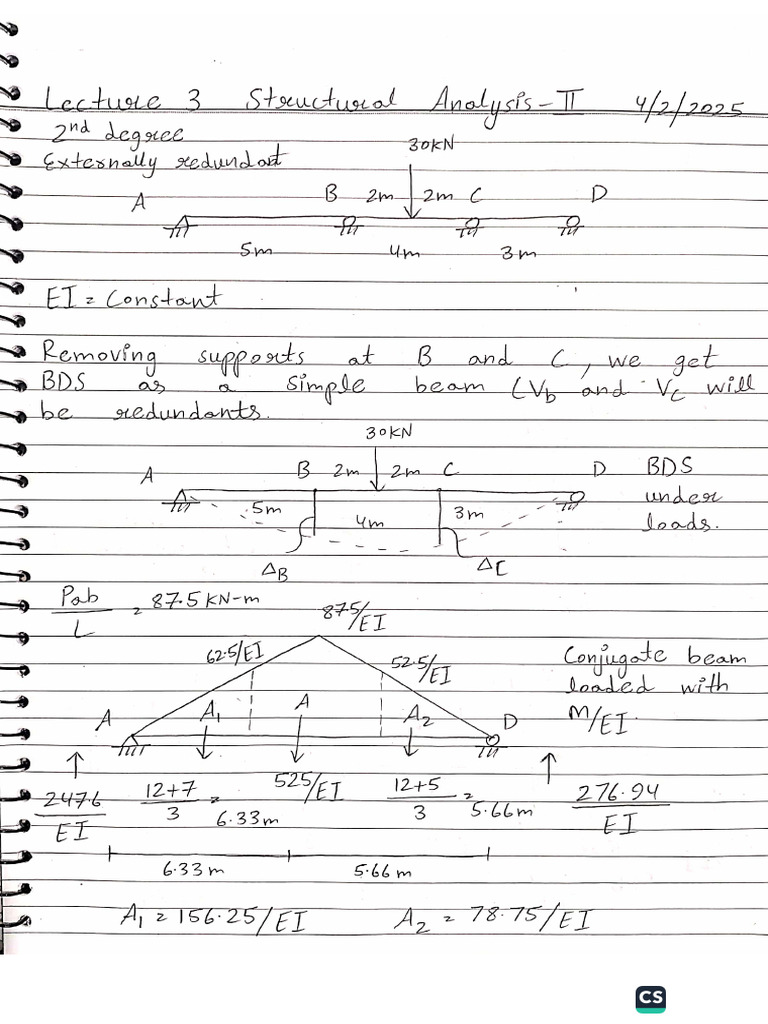 Lecture 3 Structural Analysis-II 4/2/2025
2nd degree
Externally redundant
30KN
A B 2m 2m C D
5m 4m 3m
EI = Constant
Removing supports at B and C, we get
BDS as a simple beam (Vb and Vc will
be redundants.
30KN
A B 2m 2m C D BDS
5m 4m 3m under
loads.
ΔB ΔC
Pab/L = 87.5 KN-m
87.5/EI
62.5/EI 52.5/EI Conjugate beam
loaded with
A A1 A A2 D M/EI.
247.6/EI 12+7/3 = 6.33m 525/EI 12+5/3 = 5.66m 276.94/EI
6.33m 5.66m
A1 = 156.25/EI A2 = 78.75/EI
CS